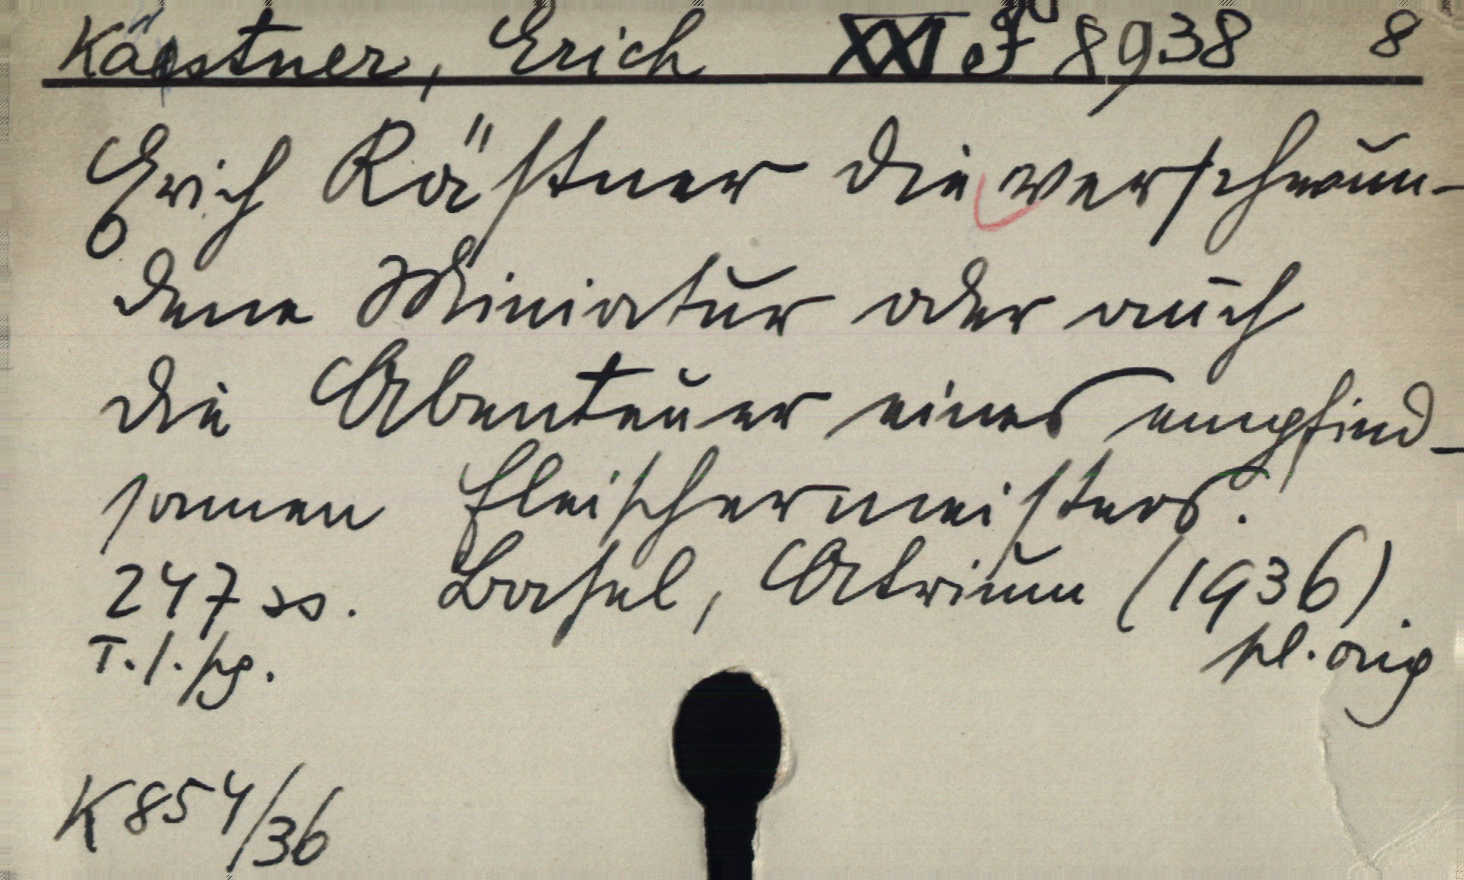 Kästner, Erich XXI F 8938 8
Erich Kästner Die verschwun-
dene Miniatur oder auch
die Abenteuer eines empfind-
samen Fleischermeisters.
247 ss. Basel, Atrium (1936)
T. l. pg. pl. orig
K 854/36